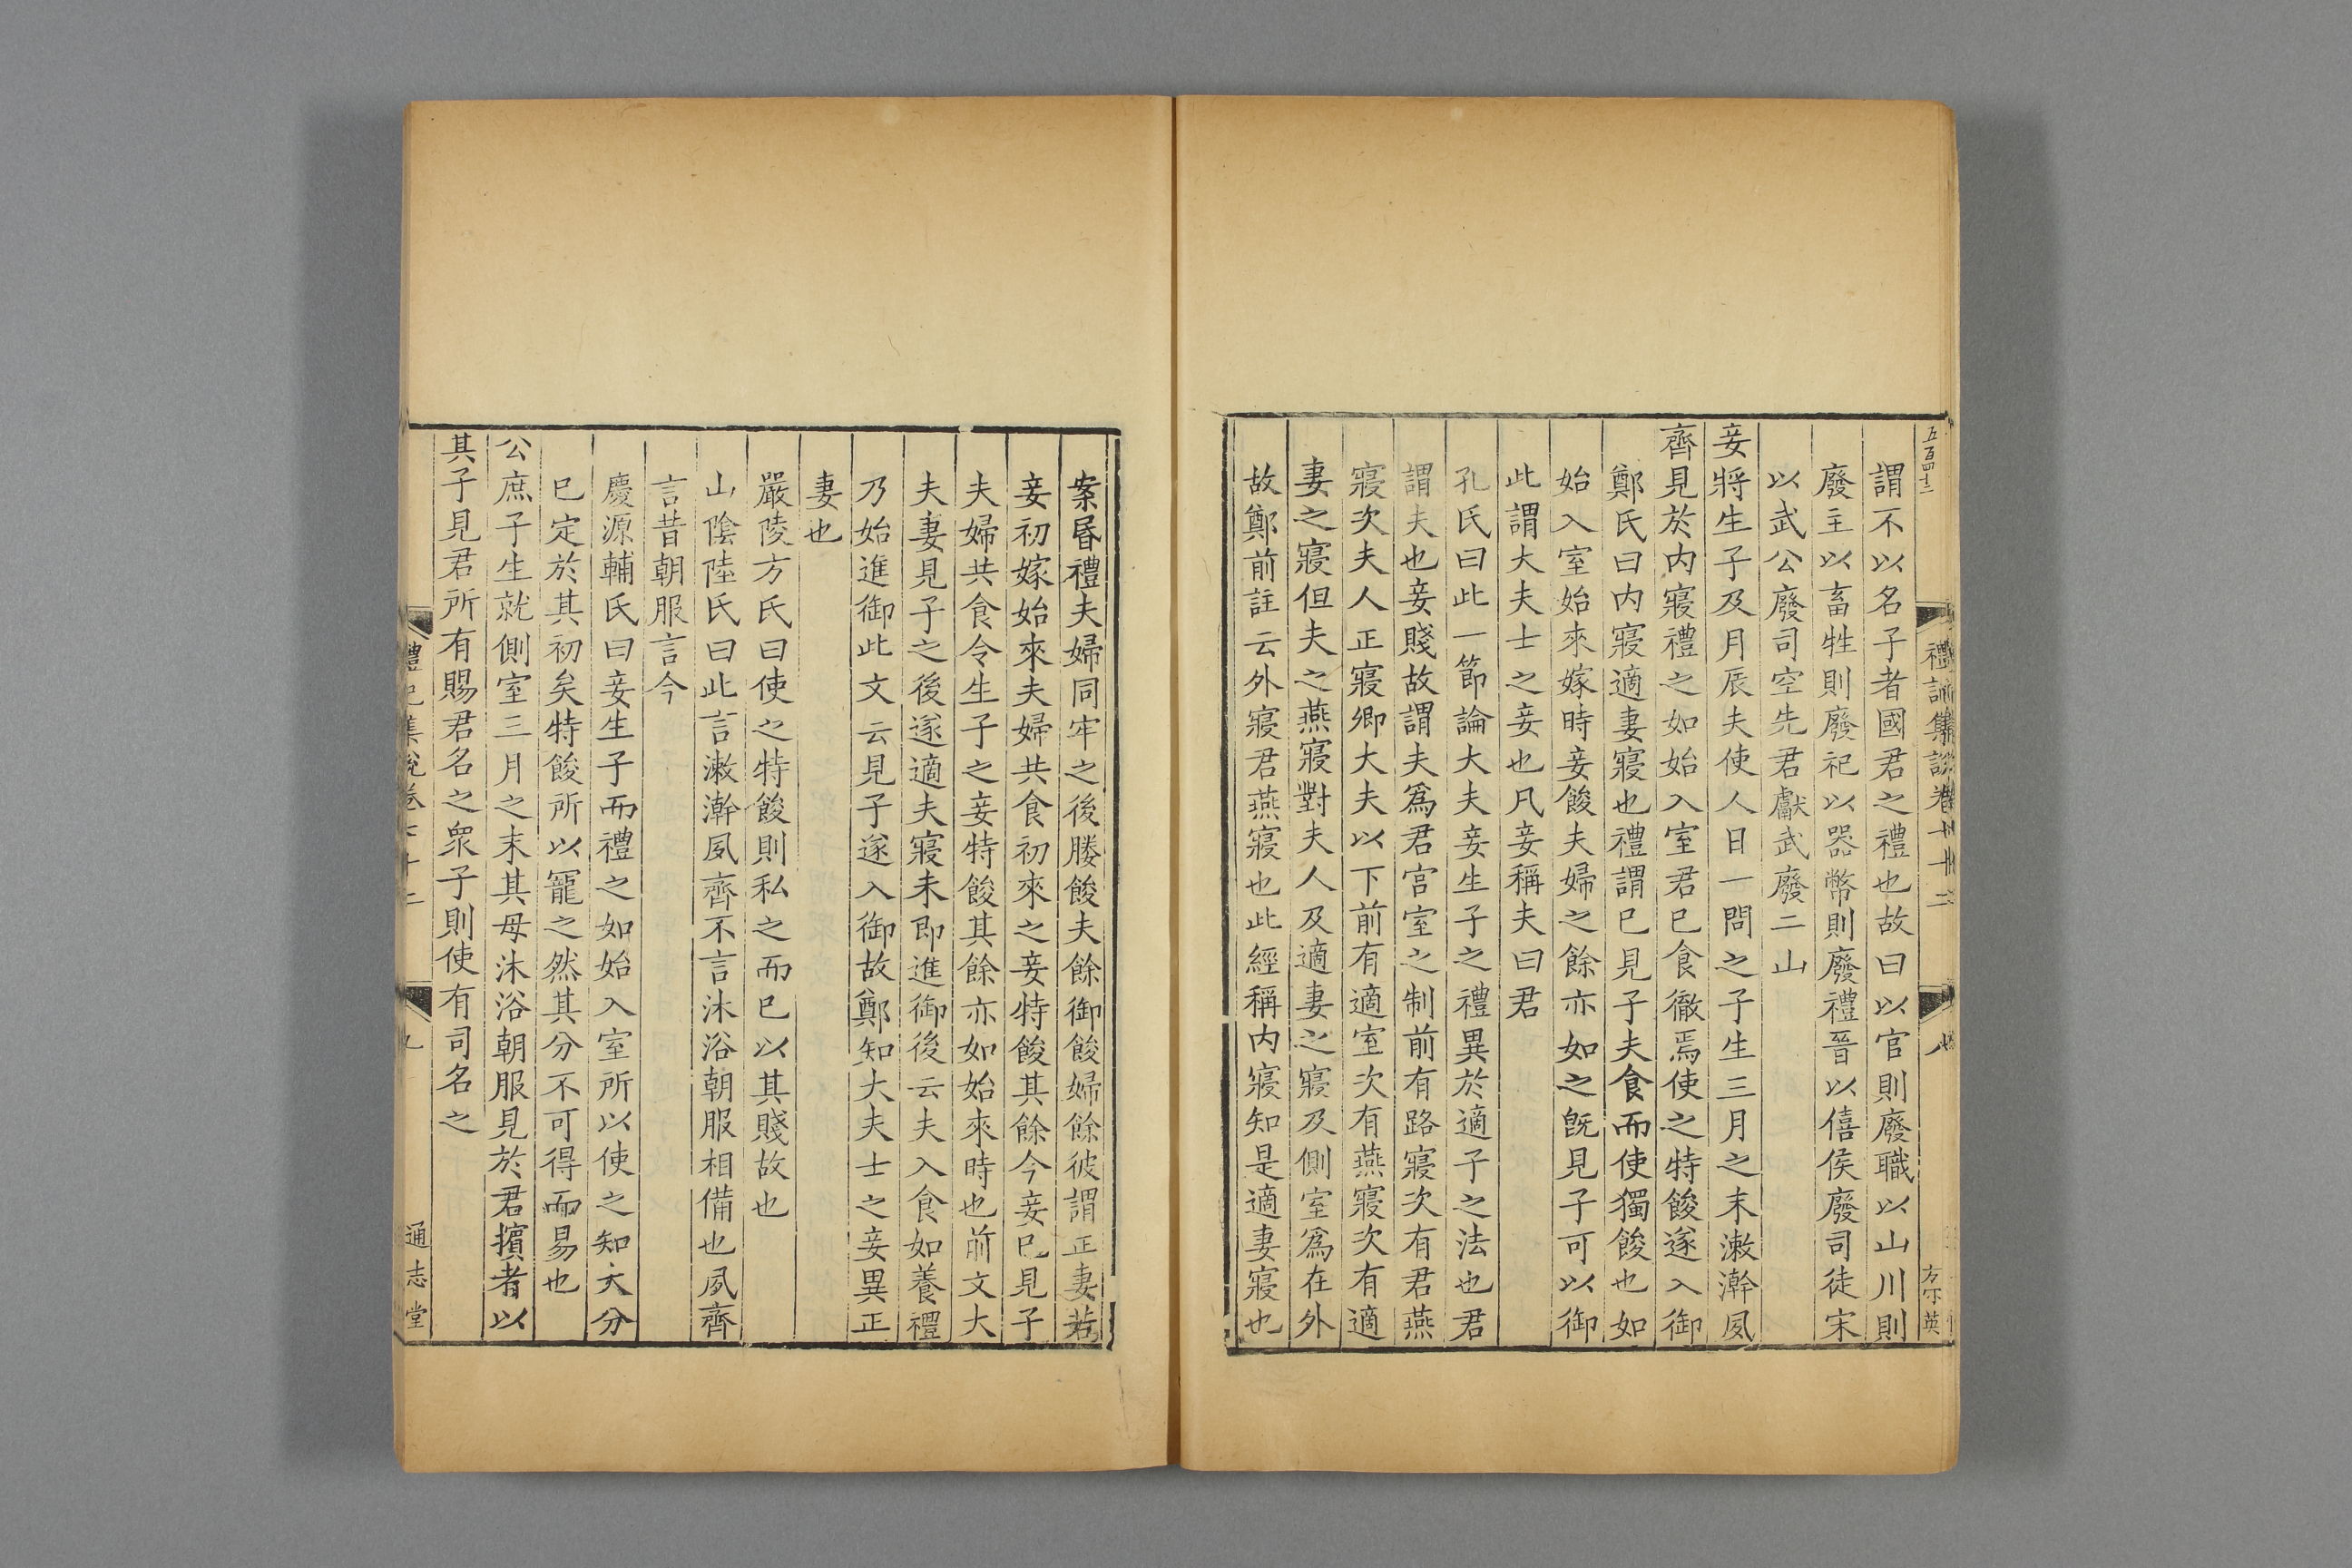 五百四十二
謂不以名子者國君之禮也故曰以官則廢職以山川則
廢主以畜牲則廢祀以器幣則廢禮晉以僖侯廢司徒宋
以武公廢司空先君獻武廢二山
妾將生子及月辰夫使人日一問之子生三月之末漱澣夙
齊見於内寢禮之如始入室君已食徹焉使之特餕遂入御
鄭氏曰内寢適妻寢也禮謂已見子夫食而使獨餕也如
始入室始來嫁時妾餕夫婦之餘亦如之旣見子可以御
此謂大夫士之妾也凡妾稱夫曰君
孔氏曰此一節論大夫妾生子之禮異於適子之法也君
謂夫也妾賤故謂夫爲君宫室之制前有路寢次有君燕
寢次夫人正寢卿大夫以下前有適室次有燕寢次有適
妻之寢但夫之燕寢對夫人及適妻之寢及側室爲在外
故鄭前註云外寢君燕寢也此經稱内寢知是適妻寢也
案昏禮夫婦同牢之後媵餕夫餘御餕婦餘彼謂正妻若
妾初嫁始來夫婦共食初來之妾特餕其餘今妾已見子
夫婦共食令生子之妾特餕其餘亦如始來時也前文大
夫妻見子之後遂適夫寢未即進御後云夫入食如養禮
乃始進御此文云見子遂入御故鄭知大夫士之妾異正
妻也
嚴陵方氏曰使之特餕則私之而已以其賤故也
山陰陸氏曰此言漱澣夙齊不言沐浴朝服相備也夙齊
言昔朝服言今
慶源輔氏曰妾生子而禮之如始入室所以使之知大分
已定於其初矣特餕所以寵之然其分不可得而易也
公庶子生就側室三月之末其母沐浴朝服見於君擯者以
其子見君所有賜君名之衆子則使有司名之
禮記集說卷七十二
九
通志堂